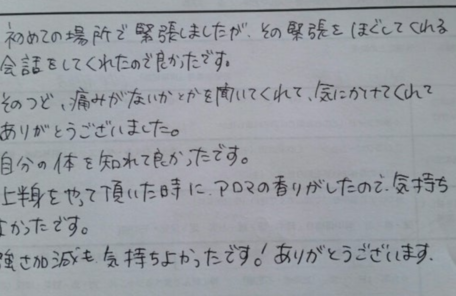 初めての場所で緊張しましたが、その緊張をほどしてくれる
会話をしてくれたので良かったです。
そのつど、痛みがないかとかを聞いてくれて、気にかけてくれて
ありがとうございました。
自分の体を知れて良かったです。
上半身をやって頂いた時に、アロマの香りがしたので、気持ち
よかったです。
強さ加減も気持ちよかったです!ありがとうございます。